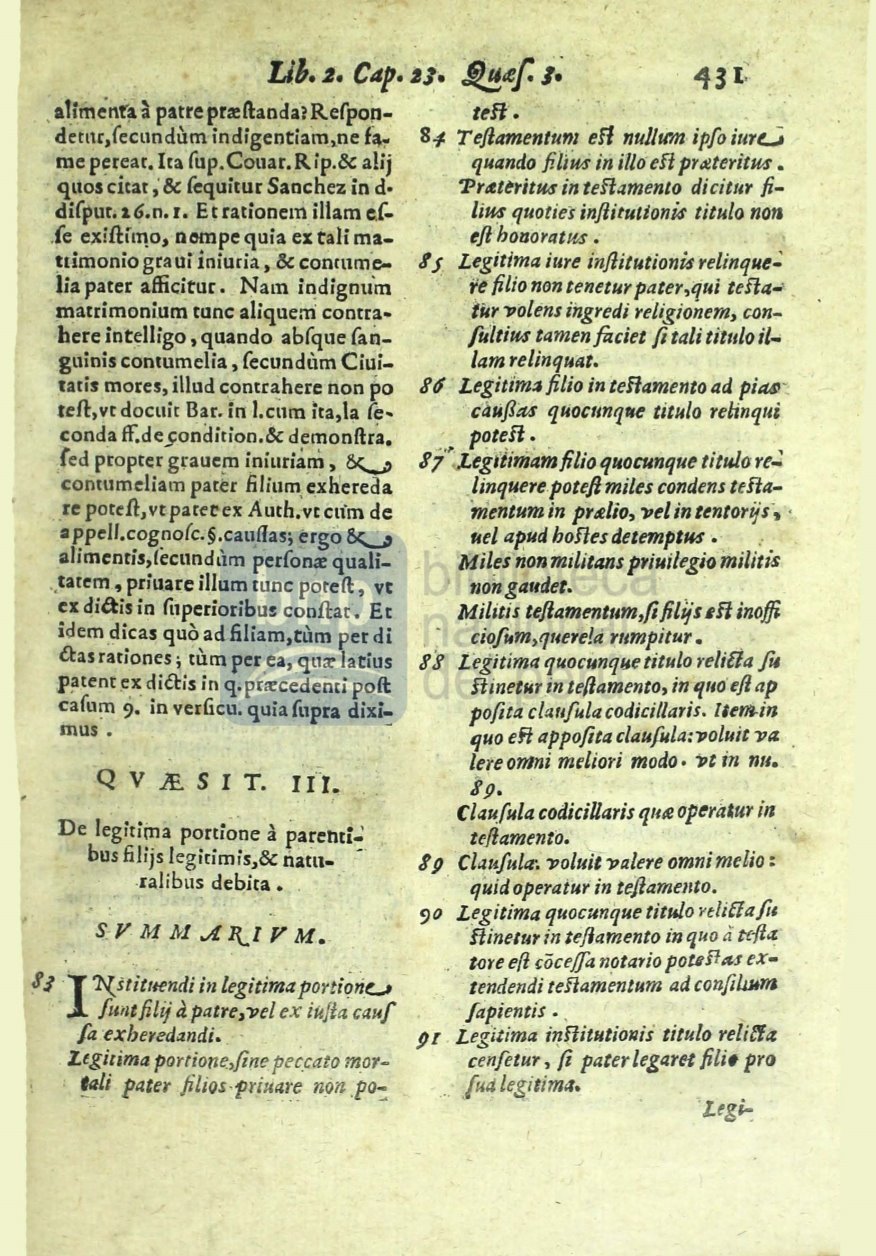 Lib. 2. Cap. 23. Quæſ. 3. 431
alimenta à patre præſtanda? Reſpon-
detur, ſecundùm indigentiam, ne fa-
me pereat. Ita ſup. Couar. Rip. & alij
quos citat, & ſequitur Sanchez in d.
diſput. 26. n. 1. Et rationem illam eſ-
ſe exiſtimo, nempe quia ex tali ma-
trimonio graui iniuria, & contume-
lia pater afficitur. Nam indignum
matrimonium tunc aliquem contra-
here intelligo, quando abſque ſan-
guinis contumelia, ſecundùm Ciui-
tatis mores, illud contrahere non po
teſt, vt docuit Bar. in l. cum ita, la ſe-
conda ff. de condition. & demonſtra.
ſed propter grauem iniuriam, &
contumeliam pater filium exhereda
re poteſt, vt patet ex Auth. vt cùm de
appell. cognoſc. §. cauſſas; ergo &
alimentis, ſecundùm perſonæ quali-
tatem, priuare illum tunc poteſt, vt
ex dictis in ſuperioribus conſtat. Et
idem dicas quò ad filiam, tùm per di
ctas rationes; tùm per ea, quæ latius
patent ex dictis in q. præcedenti poſt
caſum 9. in verſicu. quia ſupra dixi-
mus.
QVÆSIT. III.
De legitima portione à parenti-
bus filijs legitimis, & natu-
ralibus debita.
SVMMARIVM.
83 INſtituendi in legitima portione
ſunt filij à patre, vel ex iuſta cauſ
ſa exheredandi.
Legitima portione, ſine peccato mor-
tali pater filios priuare non po-
teſt.
84 Teſtamentum eſt nullum ipſo iure
quando filius in illo eſt præteritus.
Præteritus in teſtamento dicitur fi-
lius quoties inſtitutionis titulo non
eſt honoratus.
85 Legitima iure inſtitutionis relinque-
re filio non tenetur pater, qui teſta-
tur volens ingredi religionem, con-
ſultius tamen faciet ſi tali titulo il-
lam relinquat.
86 Legitima filio in teſtamento ad pias
cauſſas quocunque titulo relinqui
poteſt.
87 Legitimam filio quocunque titulo re-
linquere poteſt miles condens teſta-
mentum in prælio, vel in tentorijs,
uel apud hoſtes detemptus.
Miles non militans priuilegio militis
non gaudet.
Militis teſtamentum, ſi filijs eſt inoffi
cioſum, querela rumpitur.
88 Legitima quocunque titulo relicta ſu
ſtinetur in teſtamento, in quo eſt ap
poſita clauſula codicillaris. Item in
quo eſt appoſita clauſula: voluit va
lere omni meliori modo. vt in nu.
89.
Clauſula codicillaris quæ operatur in
teſtamento.
89 Clauſula: voluit valere omni melio:
quid operatur in teſtamento.
90 Legitima quocunque titulo relicta ſu
ſtinetur in teſtamento in quo à teſta
tore eſt cõceſſa notario poteſtas ex-
tendendi teſtamentum ad conſilium
ſapientis.
91 Legitima inſtitutionis titulo relicta
cenſetur, ſi pater legaret filio pro
ſua legitima.
Legi-